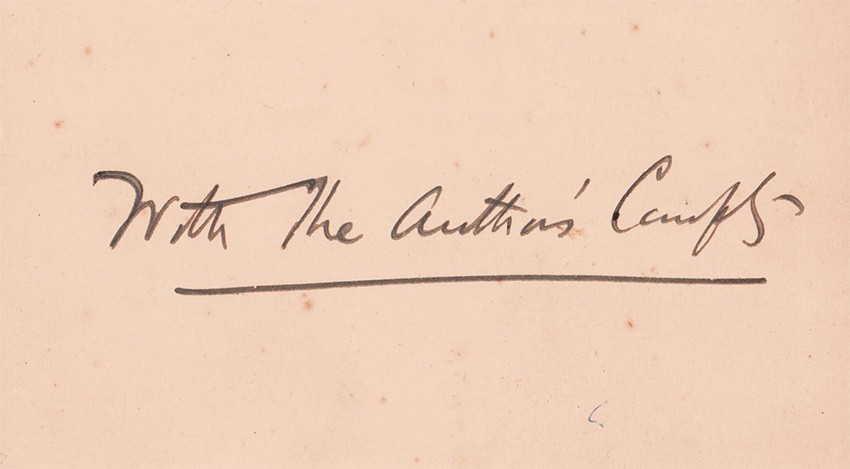 With The Author's Compts